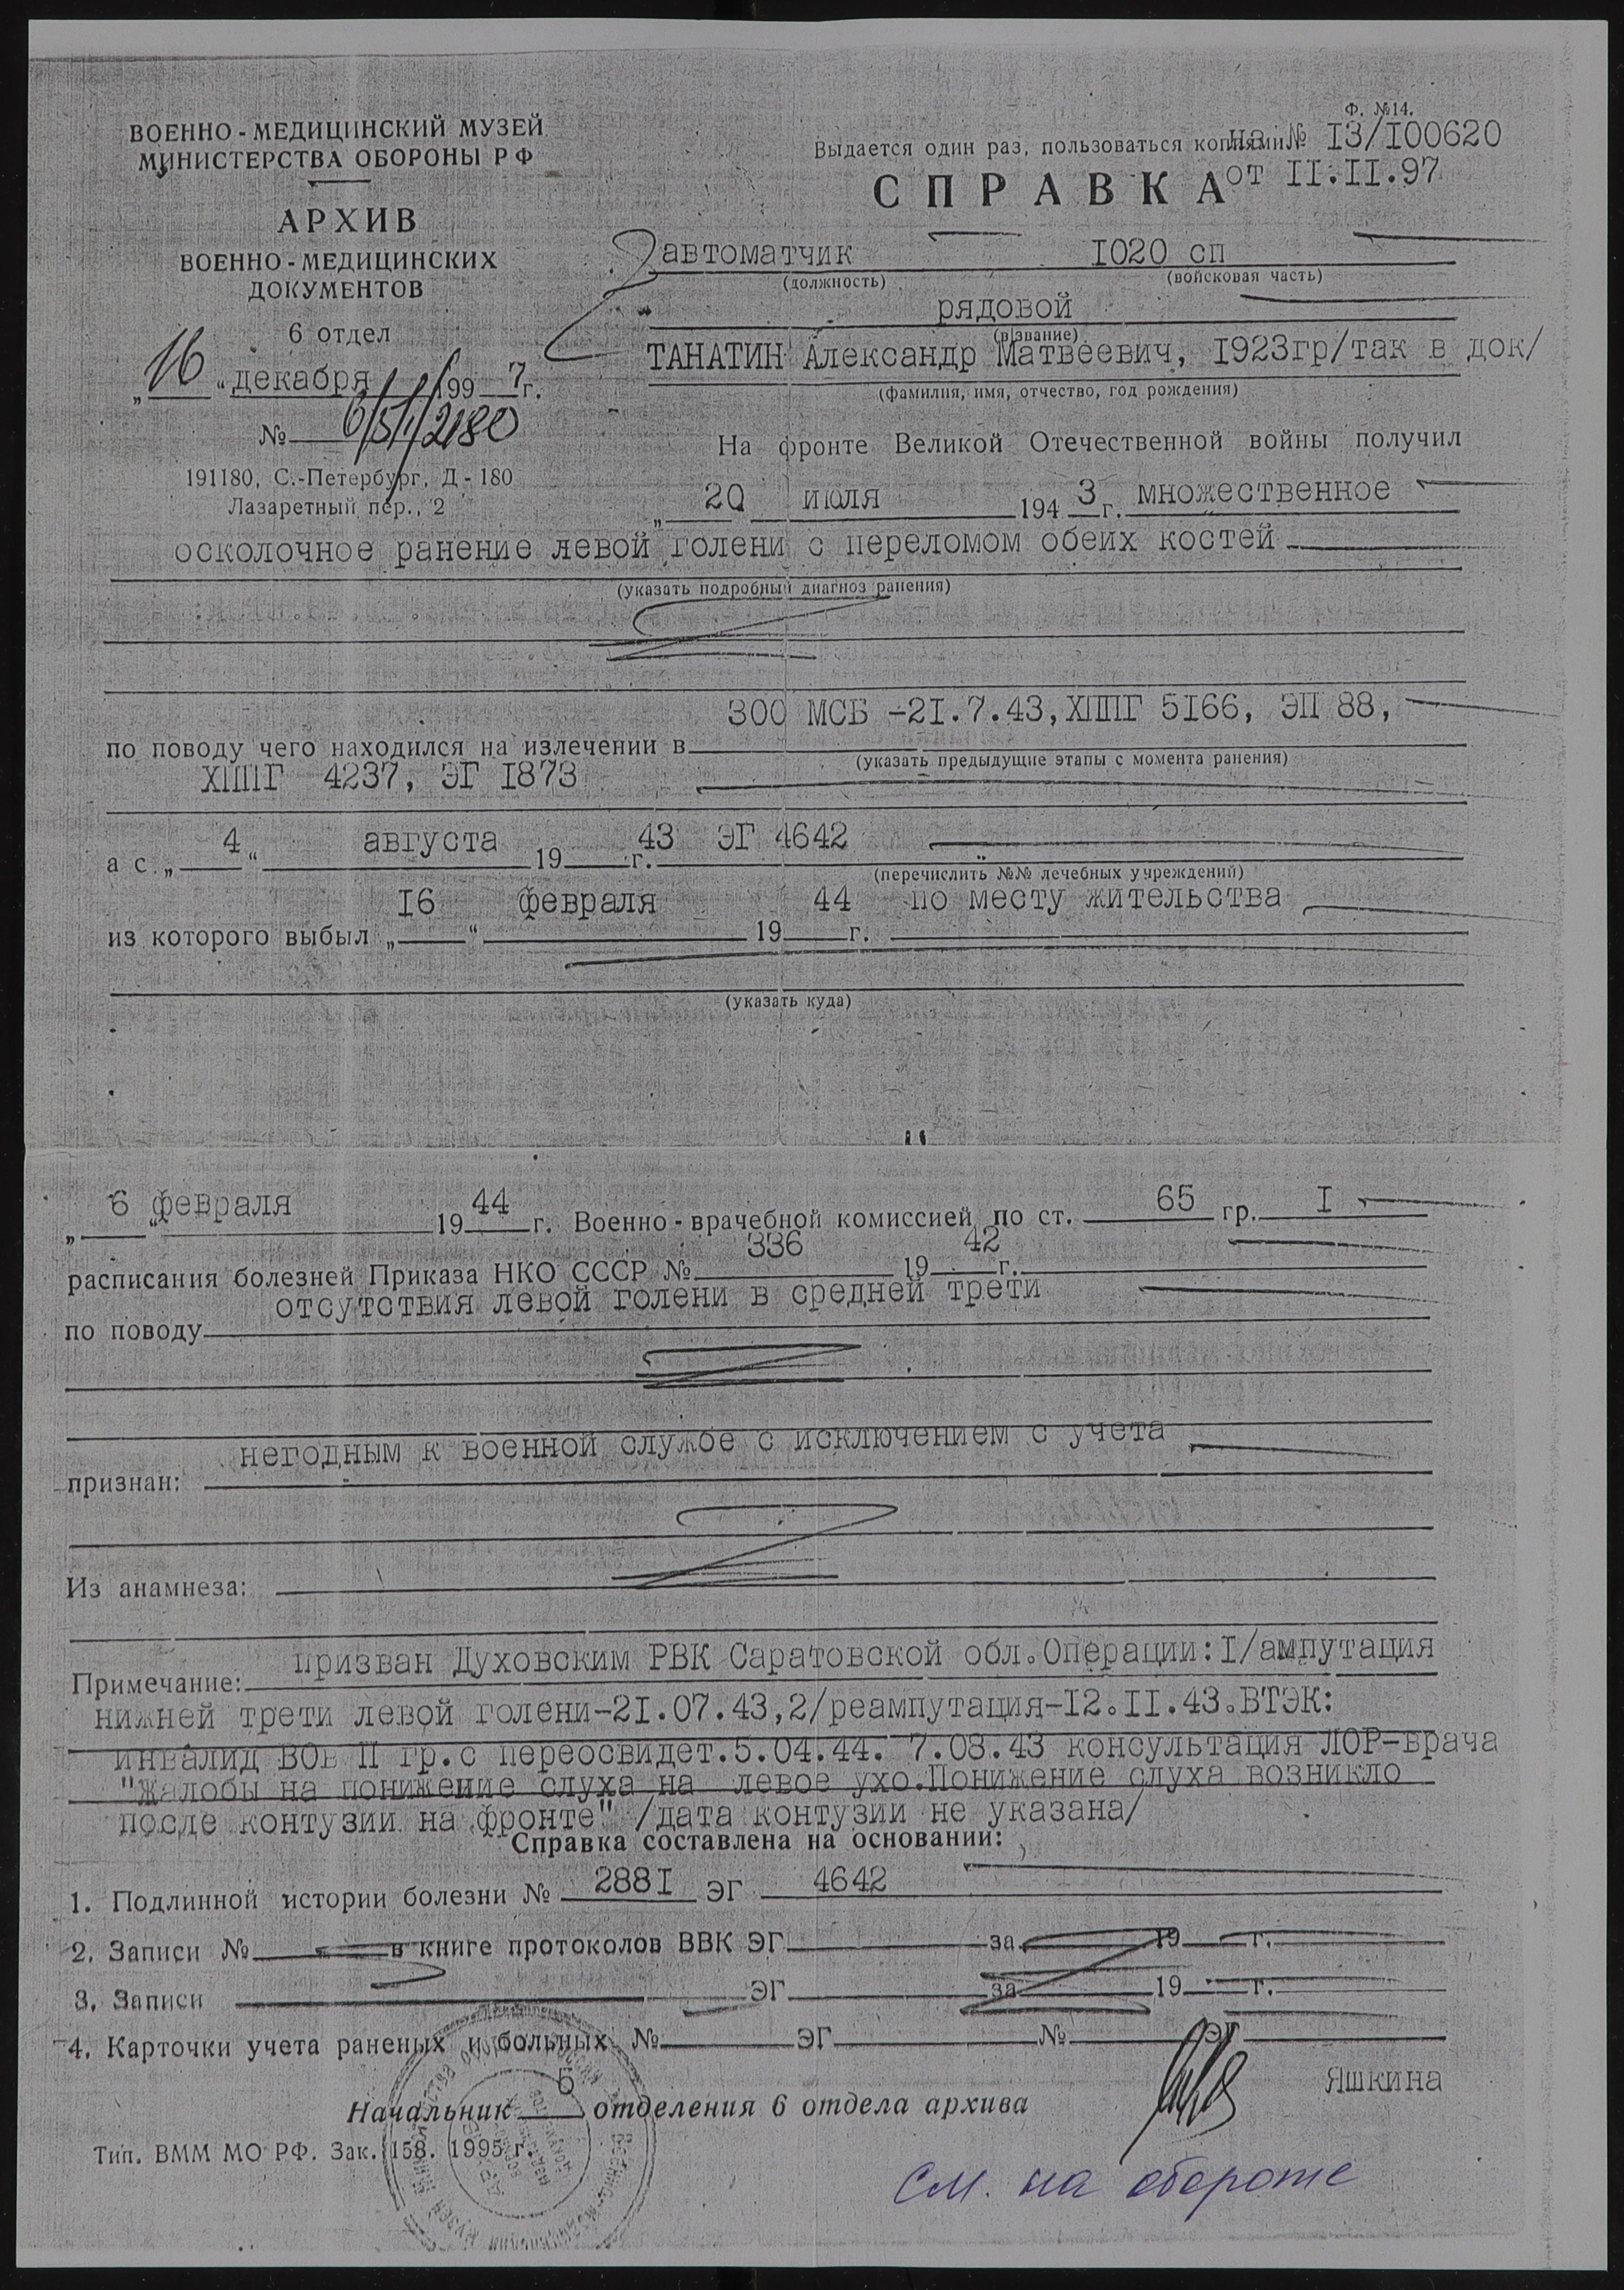 Ф. №14.
ВОЕННО - МЕДИЦИНСКИЙ МУЗЕЙ
МИНИСТЕРСТВА ОБОРОНЫ РФ
АРХИВ
ВОЕННО - МЕДИЦИНСКИХ
ДОКУМЕНТОВ
6 отдел
„16“ декабря 1997 г.
№ 6/5/1/2180
191180, С.-Петербург, Д - 180
Лазаретный пер., 2
Выдается один раз, пользоваться копиями
на № I3/I00620
СПРАВКА от II.II.97
автоматчик I020 сп
(должность) (войсковая часть)
рядовой
(звание)
ТАНАТИН Александр Матвеевич, I923гр/так в док/
(фамилия, имя, отчество, год рождения)
На фронте Великой Отечественной войны получил
„20 июля 1943 г. множественное
осколочное ранение левой голени с переломом обеих костей
(указать подробный диагноз ранения)
300 МСБ -2I.7.43, ХППГ 5I66, ЭП 88,
по поводу чего находился на излечении в
(указать предыдущие этапы с момента ранения)
ХППГ 4237, ЭГ I873
а с „4“ августа 1943 г. ЭГ 4642
(перечислить №№ лечебных учреждений)
из которого выбыл „I6“ февраля 1944 г. по месту жительства
(указать куда)
„6“ февраля 1944 г. Военно - врачебной комиссией по ст. 65 гр. I
расписания болезней Приказа НКО СССР № 336 1942 г.
по поводу отсутствия левой голени в средней трети
признан: негодным к военной службе с исключением с учета
Из анамнеза:
Примечание: призван Духовским РВК Саратовской обл.Операции:I/ампутация
нижней трети левой голени-2I.07.43,2/реампутация-I2.II.43.ВТЭК:
инвалид ВОв II гр.с переосвидет.5.04.44. 7.08.43 консультация ЛОР-врача
"Жалобы на понижение слуха на левое ухо.Понижение слуха возникло
после контузии на фронте" /дата контузии не указана/
Справка составлена на основании:
1. Подлинной истории болезни № 288I ЭГ 4642
2. Записи № в книге протоколов ВВК ЭГ за 19 г.
3. Записи ЭГ за 19 г.
4. Карточки учета раненых и больных № ЭГ № ЭГ
Начальник 5 отделения 6 отдела архива Яшкина
Тип. ВММ МО РФ. Зак. 158. 1995 г.
См. на обороте